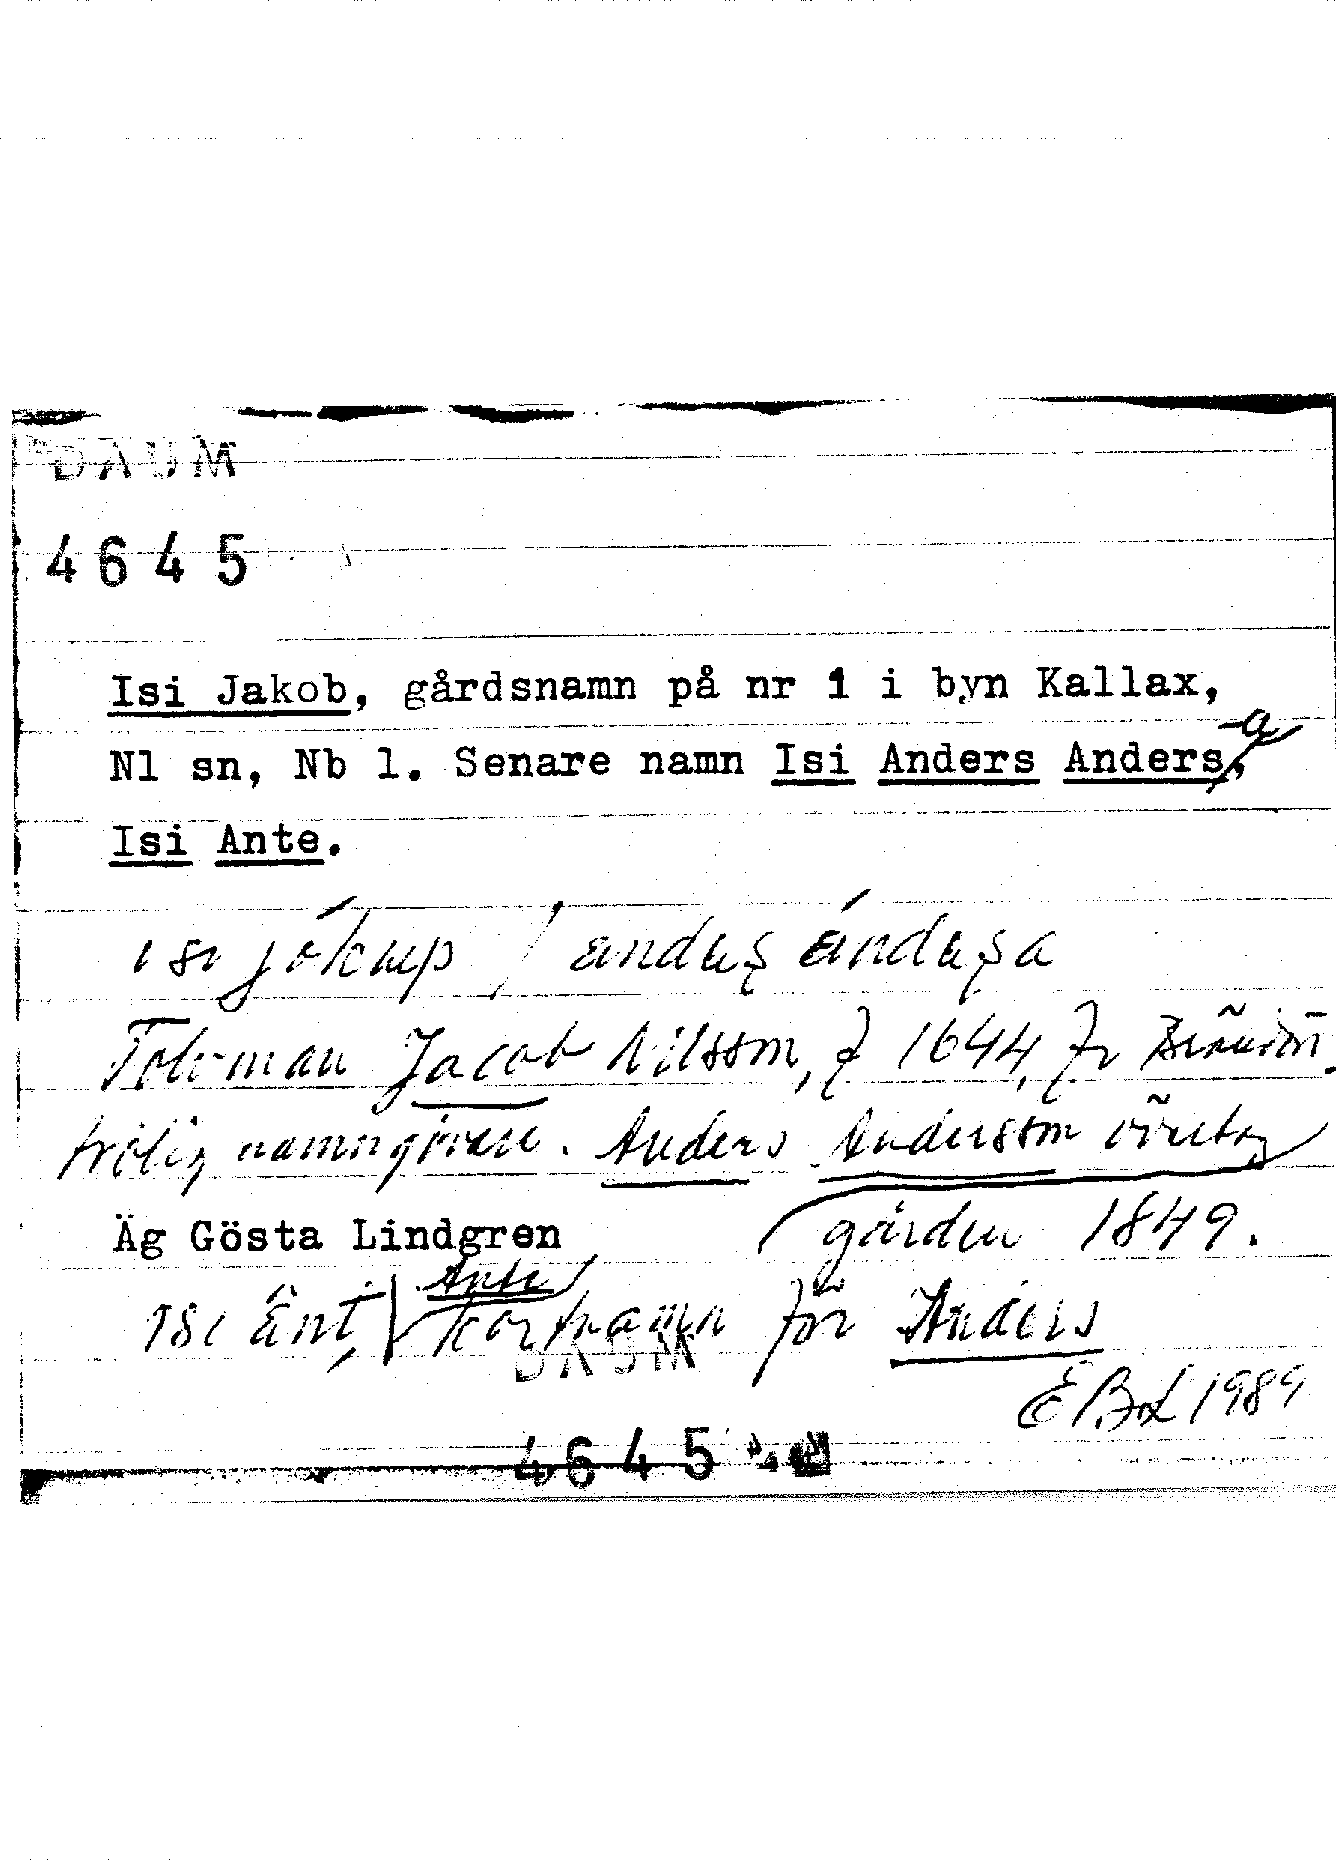 DAUM
4645
Isi Jakob, gårdsnamn på nr 1 i byn Kallax,
Nl sn, Nb l. Senare namn Isi Anders Anders-a,
Isi Ante.
isi jókup / andeş ándeşa
Tolvman Jacob Nilsson, f 1644, fr Brändön.
trolig namngivare. Anders Andersson övertog
gården 1849.
Äg Gösta Lindgren
isi änt, Ante kortnamn för Anders
EBL 1989
DAUM
4645